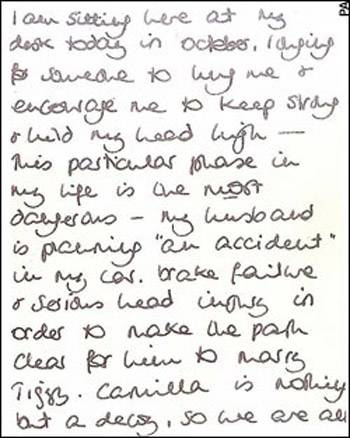 I am sitting here at my
desk today in october, longing
for someone to hug me &
encourage me to keep strong
& hold my head high —
This particular phase in
my life is the most
dangerous – my husband
is planning "an accident"
in my car. brake failure
& serious head injury in
order to make the path
clear for him to marry
Tiggy. Camilla is nothing
but a decoy, so we are all
PA